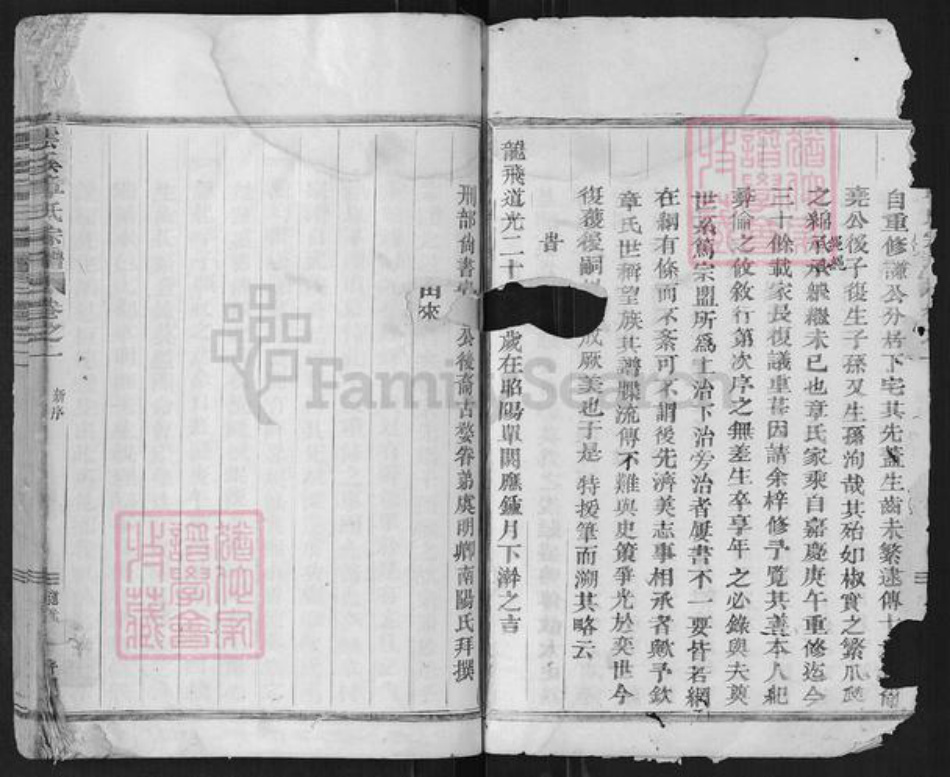 自重修謙公分居下宅其先蓋生齒未繁遠傳十
堯公後子復生子孫又生孫洵哉其殆如椒實之繁瓜瓞
之綿承承繼繼未已也章氏家乘自嘉慶庚午重修迄今
三十餘載家長復議重葺因請余梓修予覽其善本人紀
彝倫之攸敘行第次序之無差生卒享年之必錄與夫奠
世系篤宗盟所爲上治下治旁治者屢書不一要皆若網
在綱有條而不紊可不謂後先濟美志事相承者歟予欽
章氏世稱望族其譜牒流傳不難與史策爭光於奕世今
復獲後嗣
成厥美也于是特援筆而溯其略云
旹
龍飛道光二十
歲在昭陽單閼應鐘月下澣之吉
刑部尚書
公後裔古婺眷弟虞明卿南陽氏拜撰
來
章氏宗譜
卷之一
新序
FamilySearch